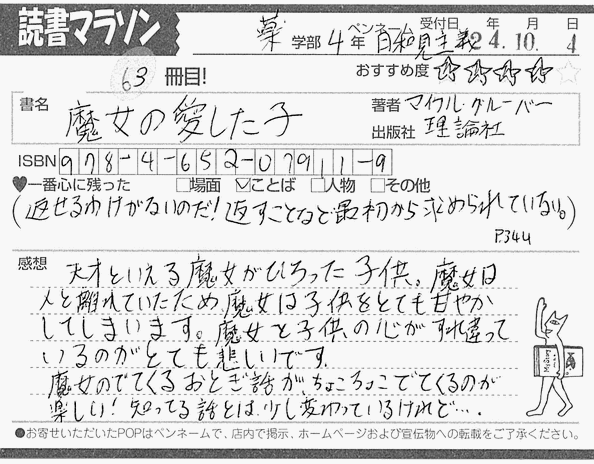 読書マラソン
薬 学部 4年 ペンネーム 日和見主義 受付日 年 月 日 24.10.4
63 冊目! おすすめ度 ★★★★☆
書名 魔女の愛した子 著者 マイケル・グルーバー
出版社 理論社
ISBN 978-4-652-07911-9
♥一番心に残った □場面 ☑ことば □人物 □その他
(返せるわけがないのだ!返すことなど最初から求められていない。)
P.344
感想 天才といえる魔女がひろった子供。魔女は
人と離れていたため、魔女は子供をとても甘やか
してしまいます。魔女と子供の心がすれ違って
いるのがとても悲しいです。
魔女のでてくるおとぎ話が、ちょこちょこでてくるのが
楽しい!知ってる話とは、少し変わっているけれど…。
●お寄せいただいたPOPはペンネームで、店内で掲示、ホームページおよび宣伝物への転載をご了承ください。